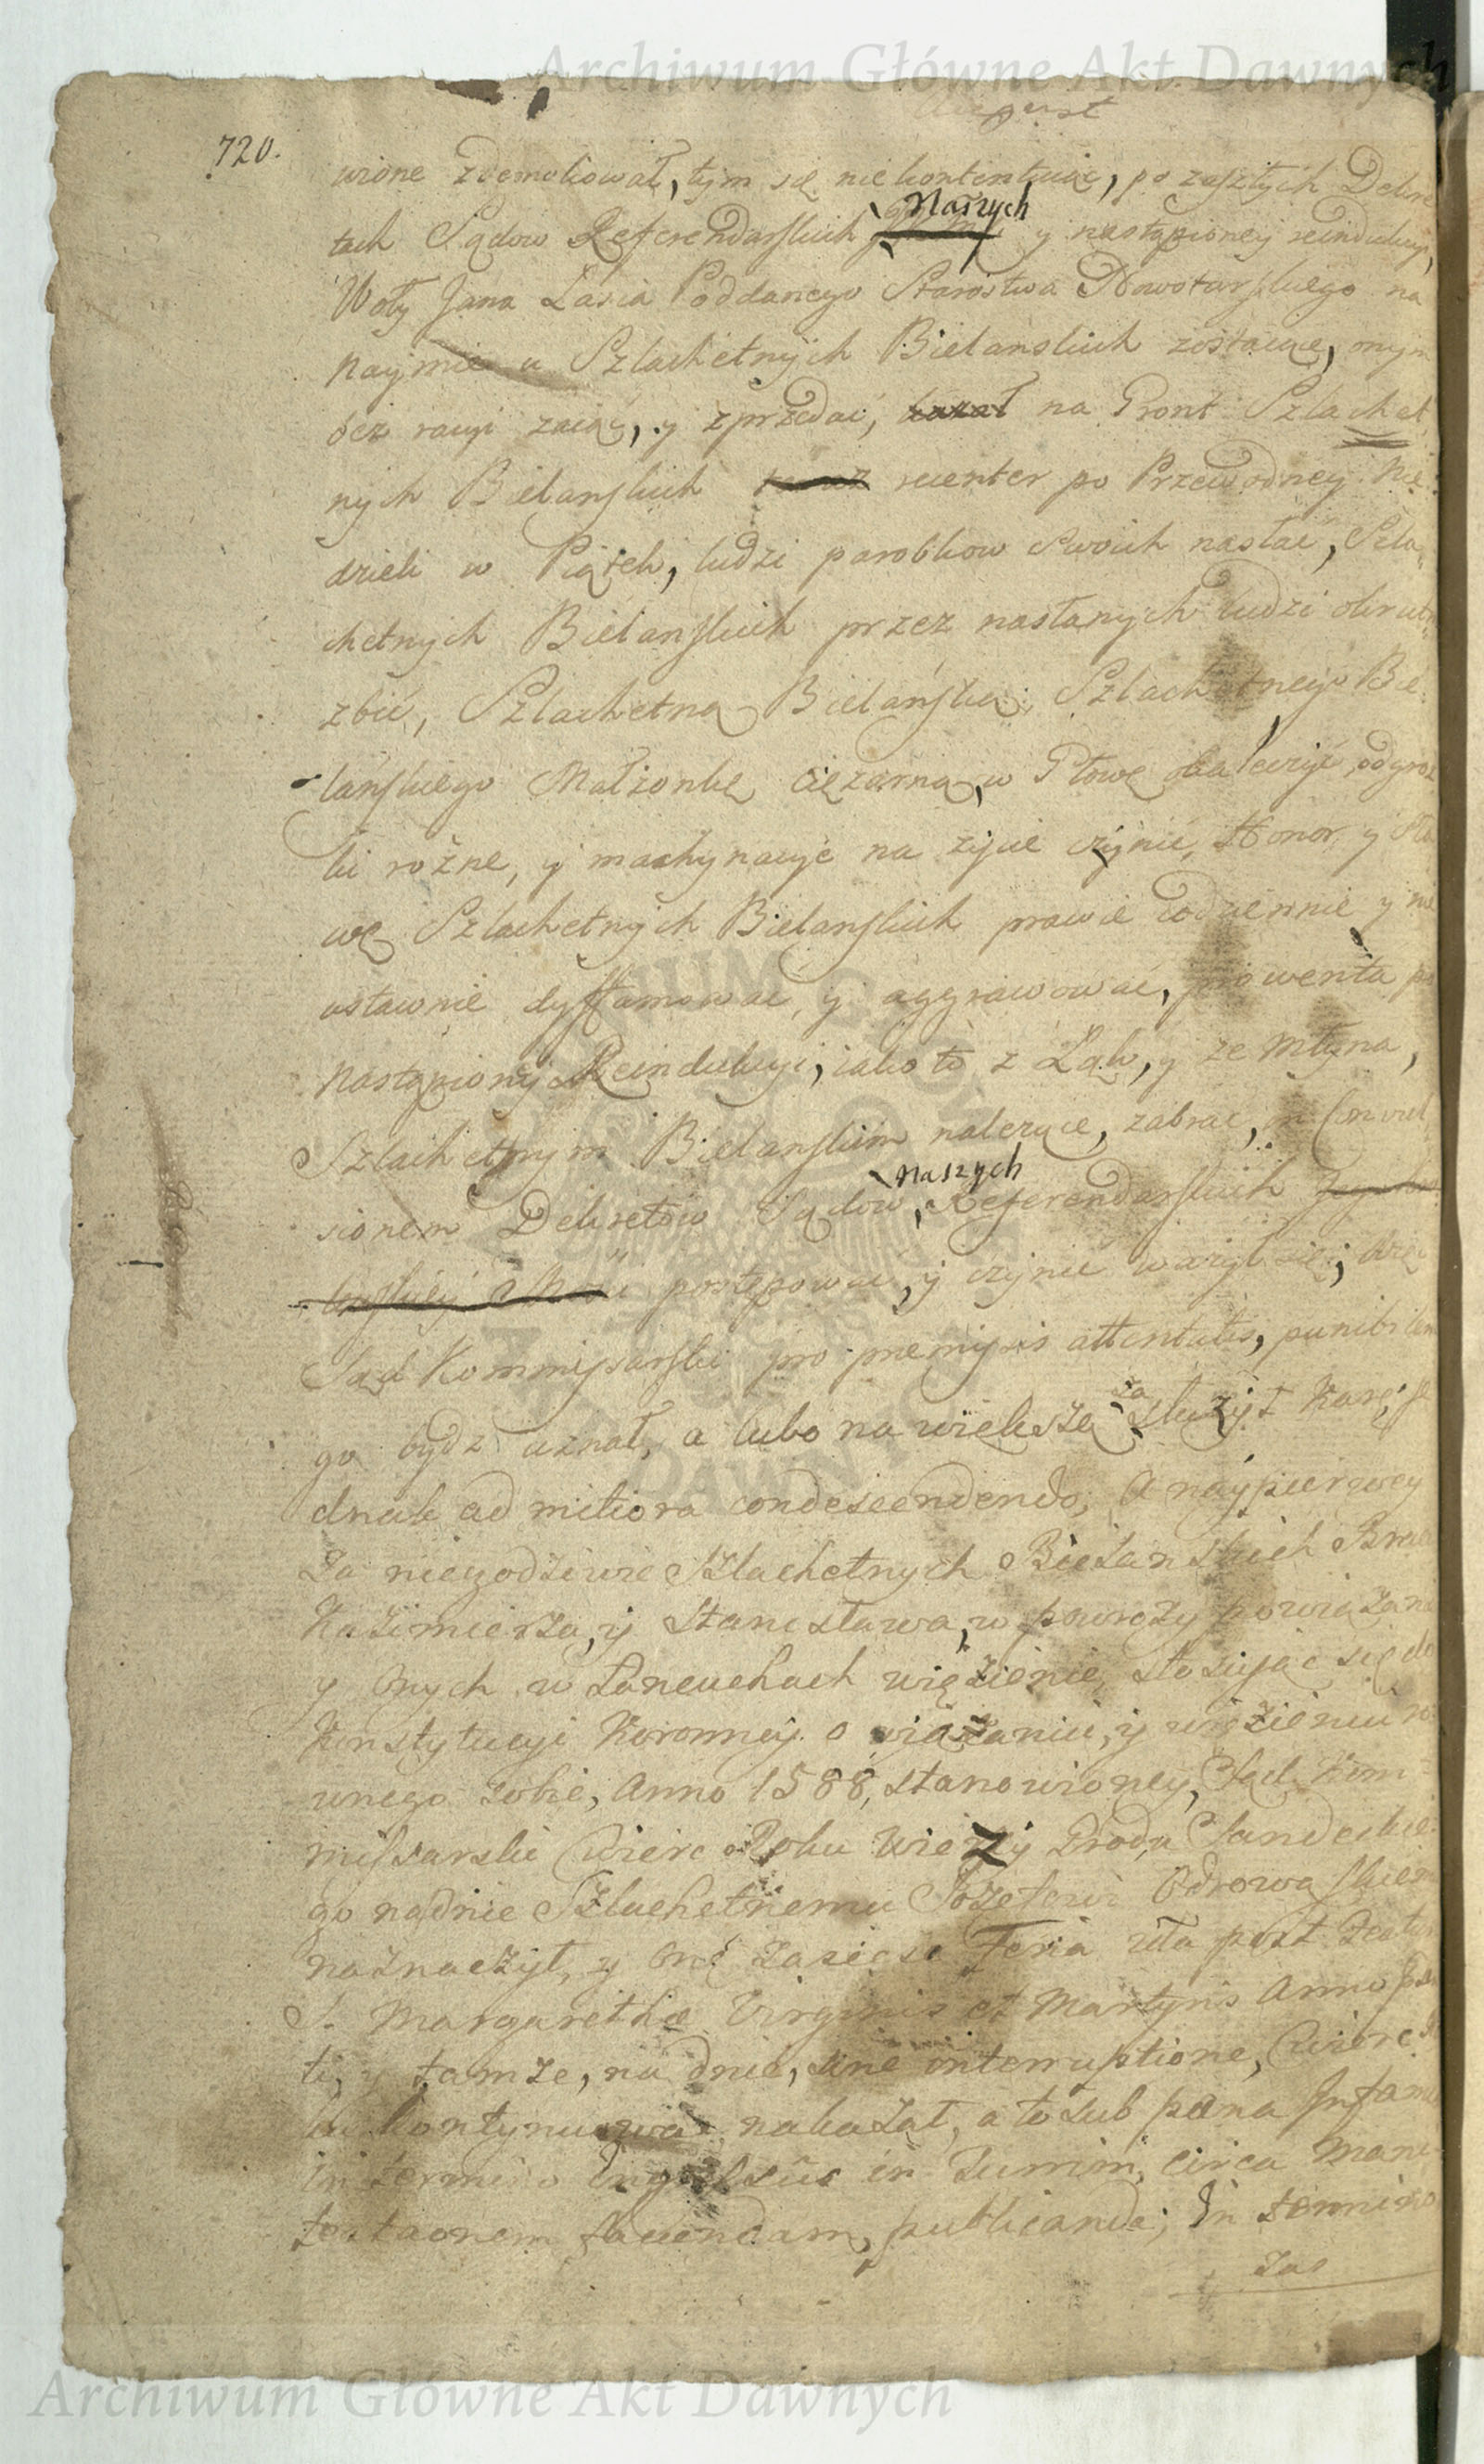 Archiwum Główne Akt Dawnych
August
720.
wione zdemoliował, tym się niekontentuiąc, po zaszłych Dekre
tach Sądow Referendarskich Naszych y nastąpioney reindukcyi,
Woły Jana Lasia Poddanego Starostwa Nowotarskiego na
Naymie u Szlachetnych Bielanskich zostaiące, onym
bez racyi zaiąć, y zprzedać, kazał na Gront Szlachet
nych Bielanskich recenter po Przewodney Nie
dzieli w Piątek, ludzi parobkow Swoich nasłać, Szla
chetnych Bielanskich przez nasłanych ludzi okrut
zbić, Szlachetną Bielańską, Szlachetnego Bie
lańskiego Małżonkę ciężarną, w Głowę skaleczyć, odgroz
ki rożne, y machynacye na życie czynić, Honor y Sła
wę Szlachetnych Bielanskich prawie codziennie y nie
ustawnie dyffamować, y aggrawować, prowenta po
nastąpioney Reindukcyi, iako to z Łąk, y ze Młyna,
Szlachetnym Bielanskim należące, zabrać, in Convul
sionem Dekretow Sądow Naszych Referendarskich
postępować, y czynić ważył się; więc
Sąd Kommissarski pro premissis attentatis, punibilem
go bydz uznał, a lubo na większą zasłużył Karę, je
dnak ad mitiora condescendendo, A naypierwey
za niegodziwe Szlachetnych Bielanskich Braci
Kazimierza, y Stanisława, w powrozy powiązane
y Onych w Łancuchach więzienie, stosując się do
Konstytucyi Koronney o wiązaniu, y więzieniu ro
wnego sobie, Anno 1588, stanowioney, Sąd Kom
missarski cwierc Roku Wiezy Grodu Sandeckie
go na dnie Szlachetnemu Jozefowi Odrowąskiem
naznaczył, y Onę zasieść Feria 2da post Festum
S. Margarethæ Virginis et Martyris Anno præ
ti, y tamże, na dnie, sine interruptione, cwierc Ro
ku kontynuować nakazał, a to sub pæna Infamiæ
in termino Ingressus in Turrim, circa Mani
festationem faciendam, publicanda; In termino
zas
Archiwum Główne Akt Dawnych